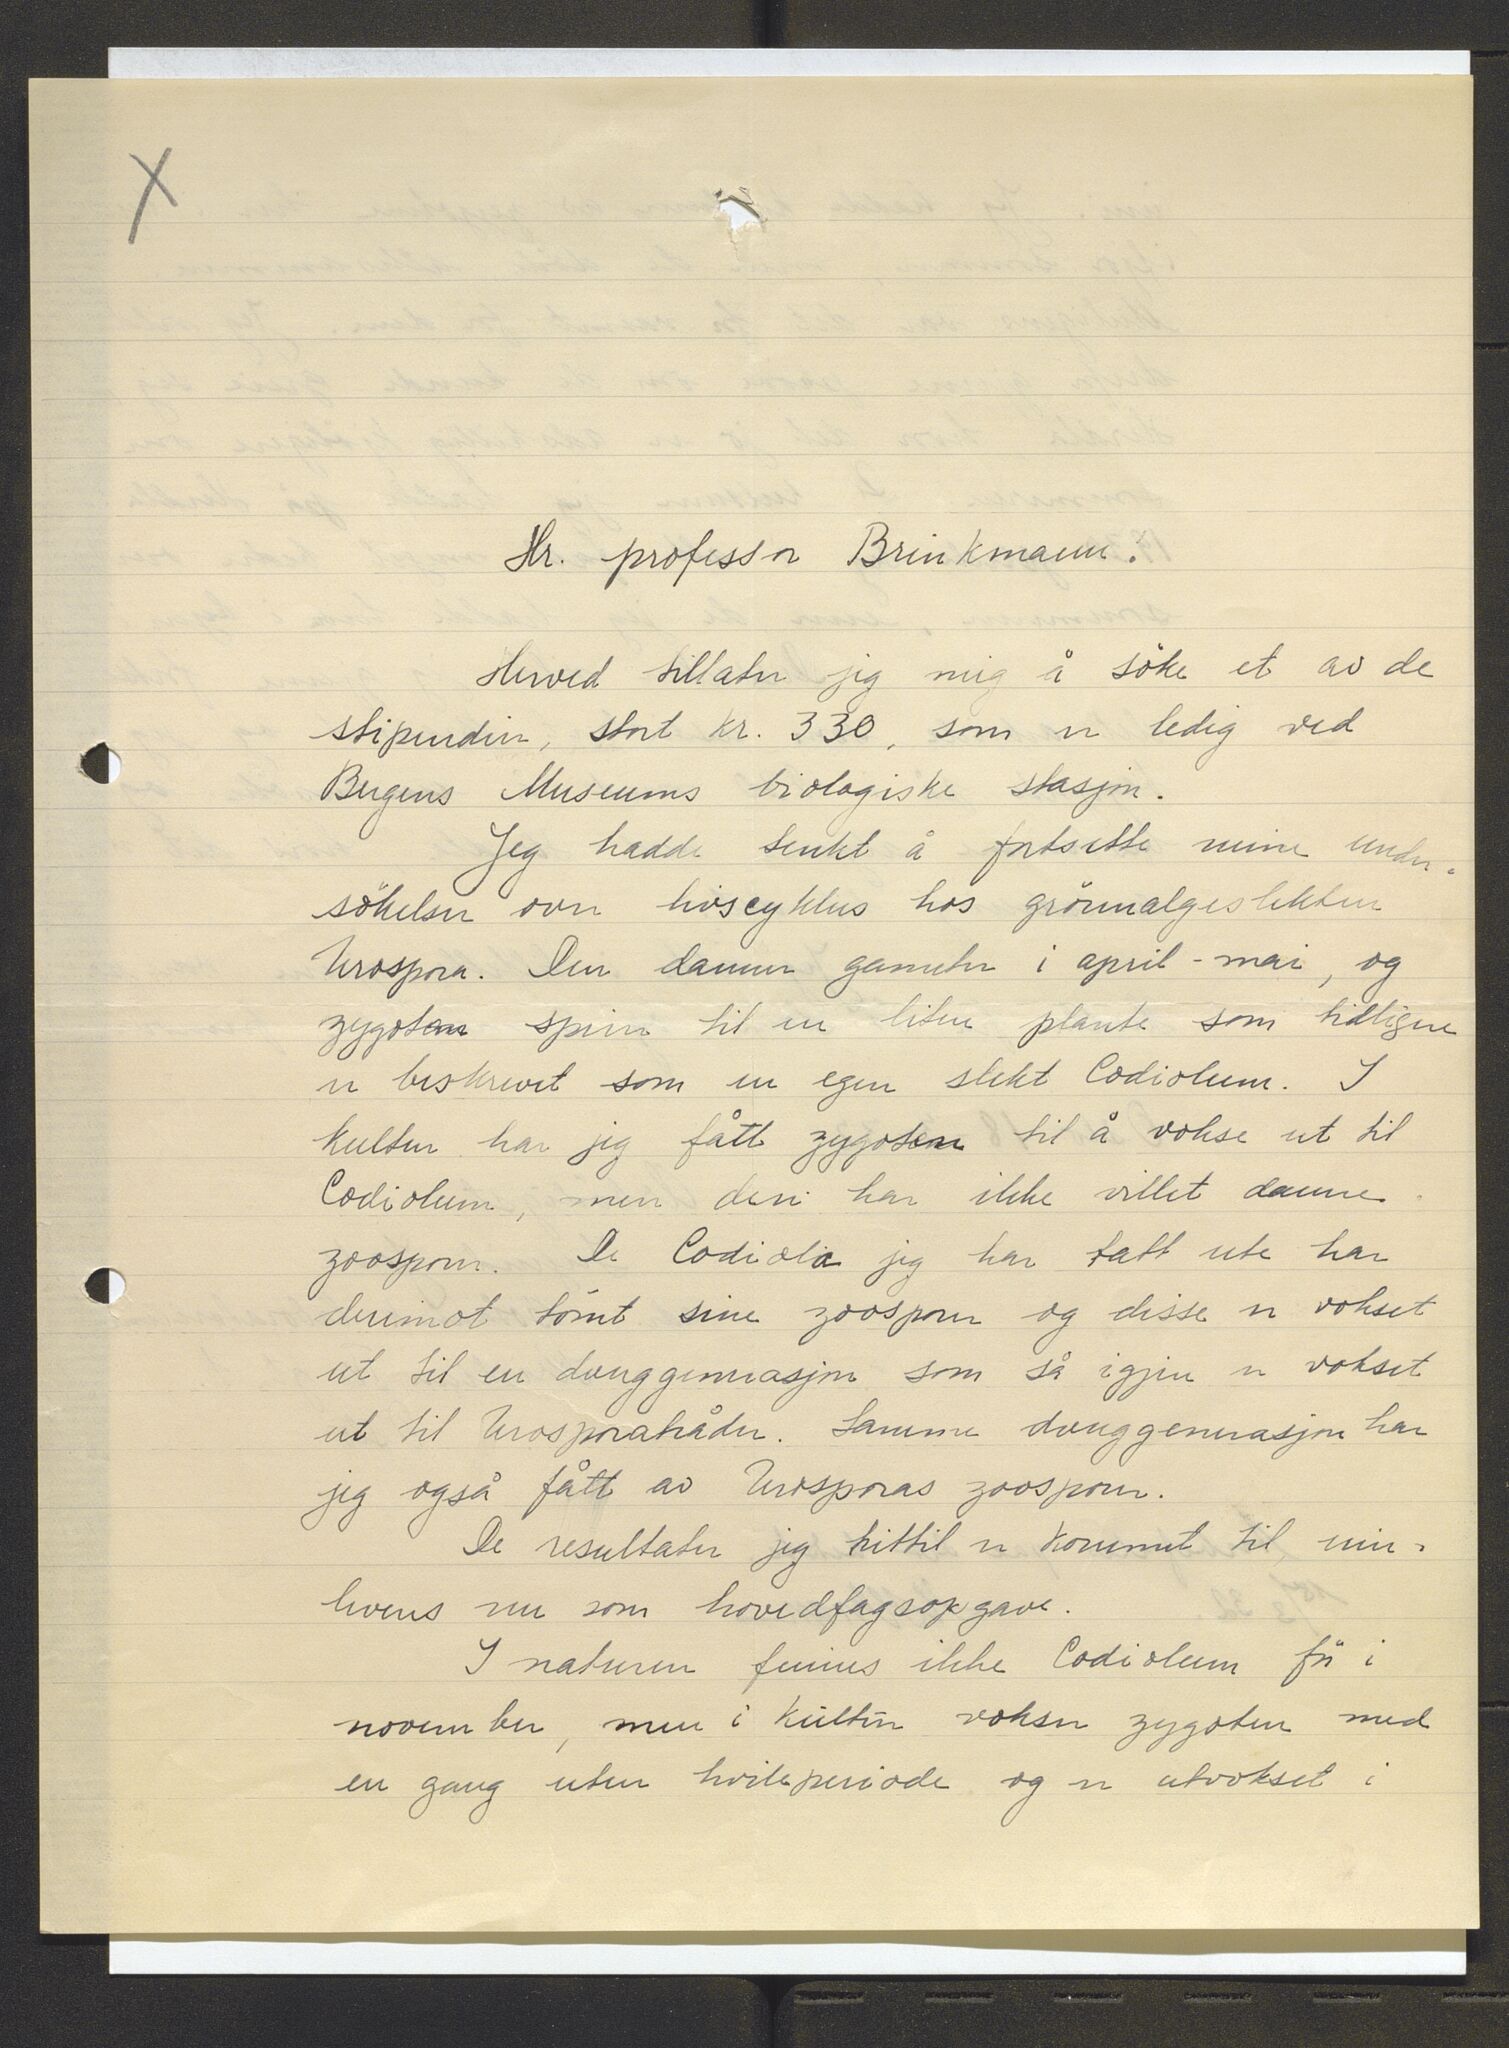 Hr. professor Brinkmann!
Herved tillater jeg mig å söke et av de
stipendier, stort kr. 330, som er ledig ved
Bergens Museums biologiske stasjon.
Jeg hadde tenkt å fortsette mine under-
sökelser over livscyklus hos grönnalgeslekten
Urospora. Den danner gameter i april - mai, og
zygoten spirer til en liten plante som tidligere
er beskrevet som en egen slekt Codiolum. I
kultur har jeg fått zygoten til å vokse ut til
Codiolum, men den har ikke villet danne
zoosporer. De Codiola jeg har tatt ute har
derimot tömt sine zoosporer og disse er vokset
ut til en dverggenerasjon som så igjen er vokset
ut til Urosporatråder. Samme dverggenerasjon har
jeg også fått av Urosporas zoosporer.
De resultater jeg hittil er kommet til, inn-
leveres nu som hovedfagsopgave.
I naturen finnes ikke Codiolum för i
november, men i kultur vokser zygoten med
en gang uten hvileperiode og er utvokset i